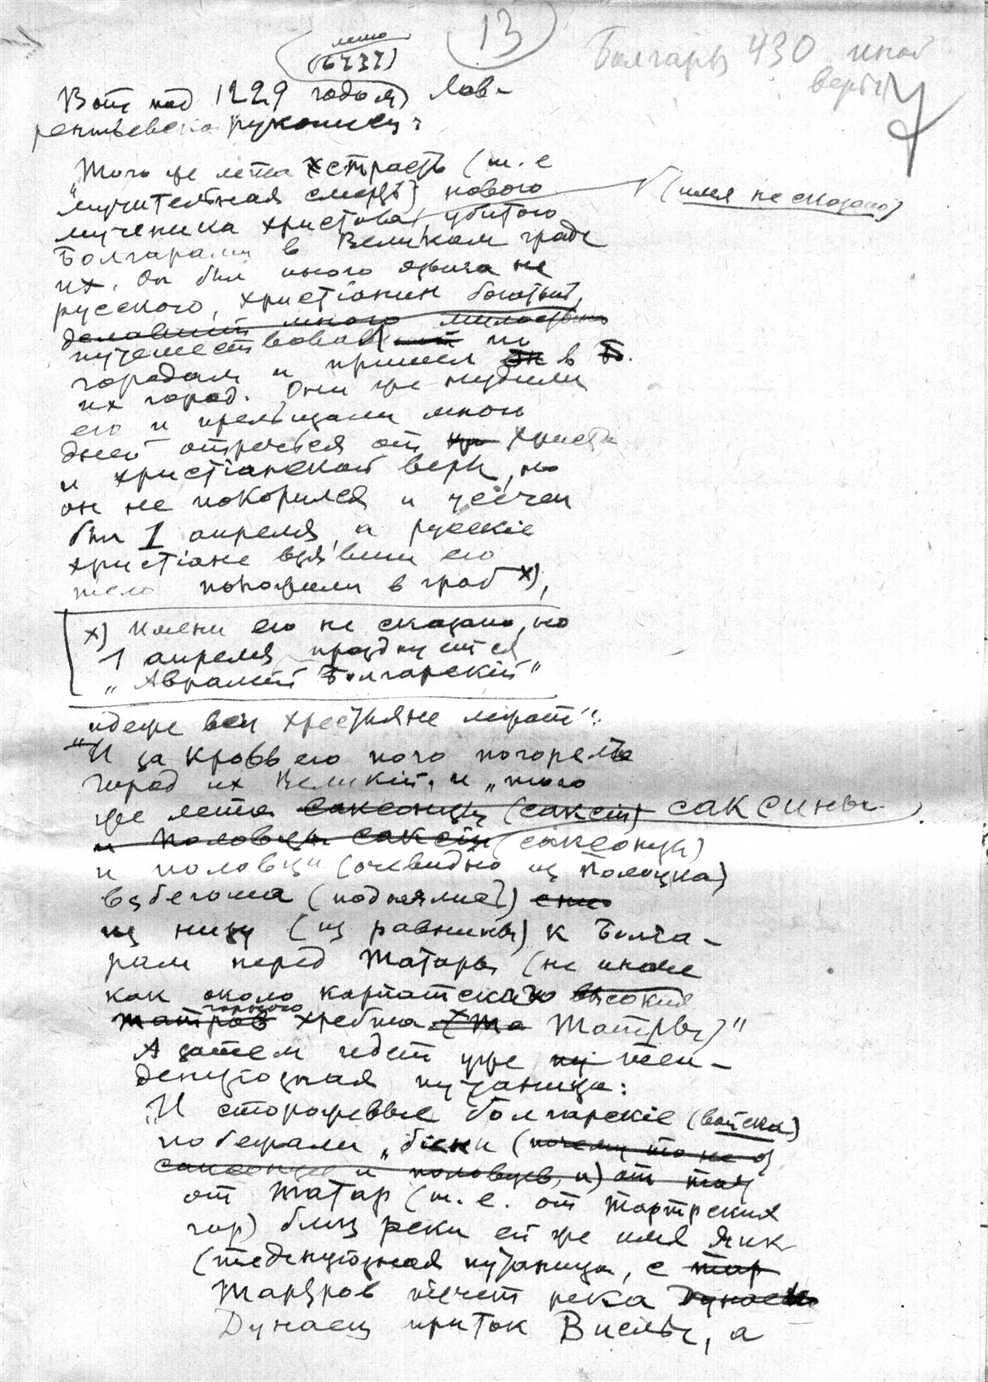 13
лето
(6737)
Болгары 430 иной
веры
Вот под 1229 годом Лав-
рентьевска рукопись:
"Того же лета страсть (т. е
мучительная смерть) нового
(имя не сказано)
мученика христова, убитого
Болгарами в Великом граде
их. Он был иного языка не
русского, христіанин богатый,
делавший много милостыни
путешествовав по
городам и пришел он в
их город. Они же нудили
его и прельщали много
дней отречься от Христа
и христіанской веры, но
он не покорился и усечен
был 1 апреля, а русскіе
христіане взявши его
тело положили в гроб х),
х) Имени его не сказано, но
1 апреля празднуется
"Авраамій Болгарскій"
"идеже вси хрестьяне лежат".
"И за кровь его погорел
город их Великій, и "того
же лета саксонцы (саксіи) саксины
и половцы саксіи (саксонцы)
и половци (очевидно из Полоцка)
взбегоша (поднялись)
из низу (из равнины) к Болга-
рам перед Татары (не иначе
как около карпатского высокие
горного
татров хребта Татры)"
А затем идет уже тен-
денциозная путаница:
И сторожевые болгарскіе (войска)
побежали "біени (почему то не от
саксонцев и половцев, а) от тат
от Татар (т. е. от Татрских
гор) близ реки ей же имя Яик
(тенденциозная путаница, с
Татров течет река Дунаец
Дунаец приток Вислы, а